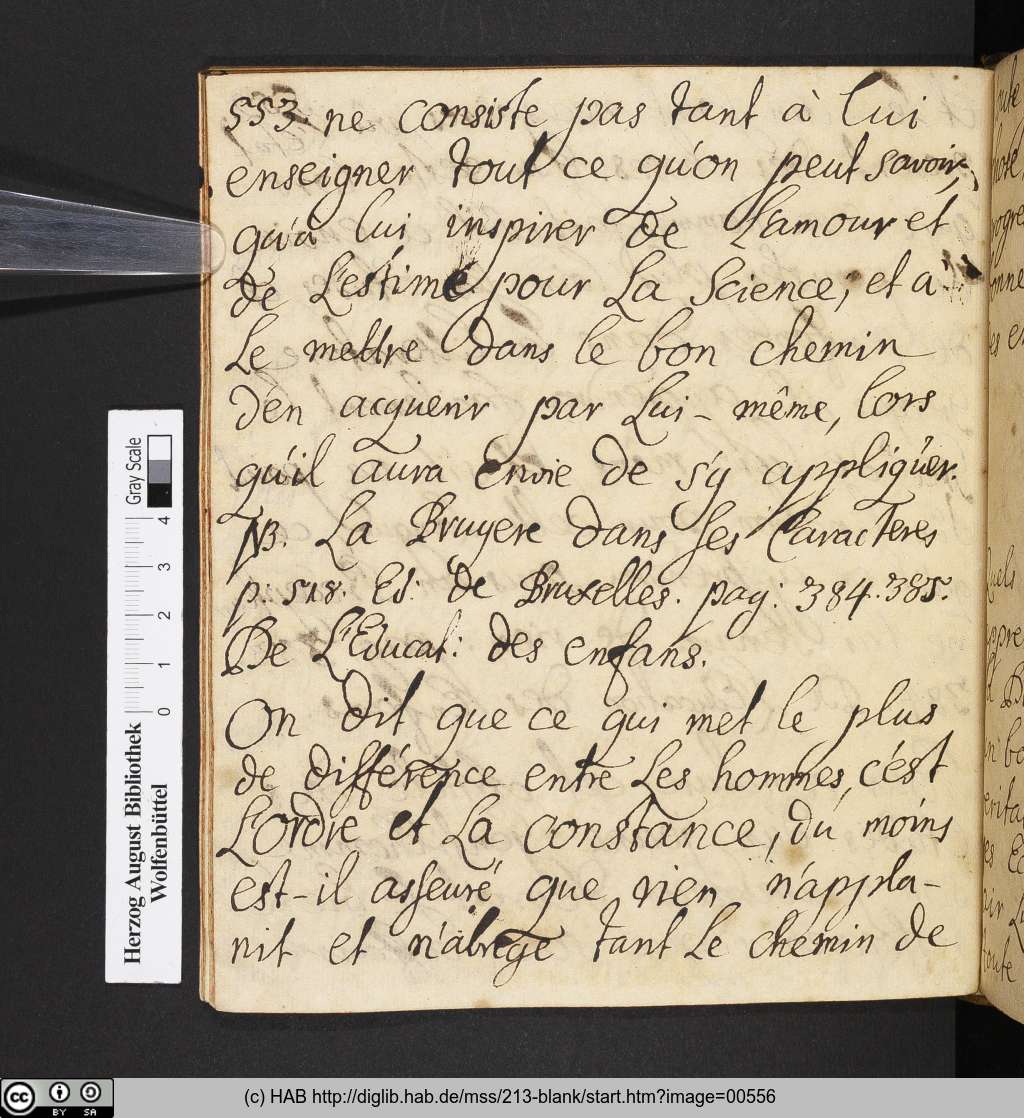 553. ne consiste pas tant à lui
enseigner tout ce qu'on peut savoir,
qu'à lui inspirer de L'amour et
de L'estime pour La Science, et a'
Le mettre dans le bon chemin
d'en acquerir par Lui-même, lors
qu'il aura envie de s'y appliquer.
NB. La Bruyere dans ses Caracteres
p: 518. Ed: de Bruxelles. pag: 384. 385.
De L'Educat: des enfans.
On dit que ce qui met le plus
de différence entre Les hommes, c'est
L'ordre et La constance, du moins
est-il asseuré que rien n'appla-
nit et n'abrege tant Le chemin de
Herzog August Bibliothek
Wolfenbüttel
0 1 2 3 4
Gray Scale
cc BY SA
(c) HAB http://diglib.hab.de/mss/213-blank/start.htm?image=00556